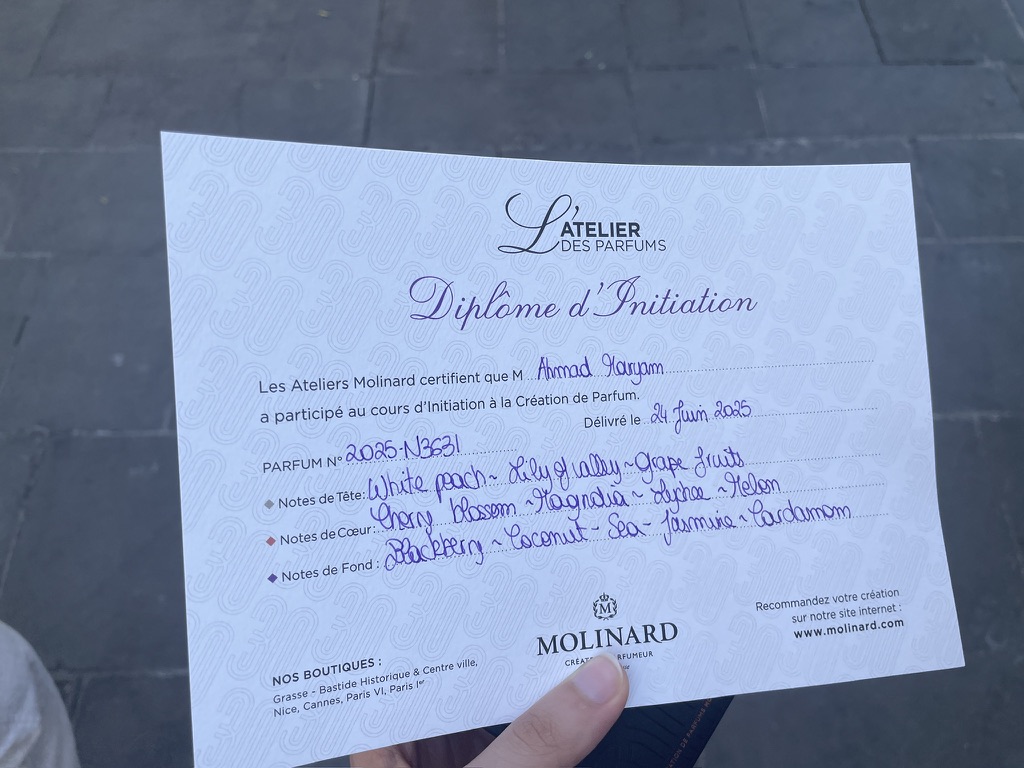 L'ATELIER
DES PARFUMS
Diplôme d'Initiation
Les Ateliers Molinard certifient que M Ahmad Maryam
a participé au cours d'Initiation à la Création de Parfum.
Délivré le 24 Juin 2025
PARFUM N° 2025-N3631
Notes de Tête: White peach ~ Lily of valley ~ Grape fruits
Notes de Cœur: Cherry blossom ~ Magnolia ~ Lychee ~ Melon
Notes de Fond : Blackberry ~ Coconut - Sea - Jasmine ~ Cardamom
M
MOLINARD
NOS BOUTIQUES :
Grasse - Bastide Historique & Centre ville,
Nice, Cannes, Paris VI, Paris Ier
Recommandez votre création
sur notre site internet :
www.molinard.com